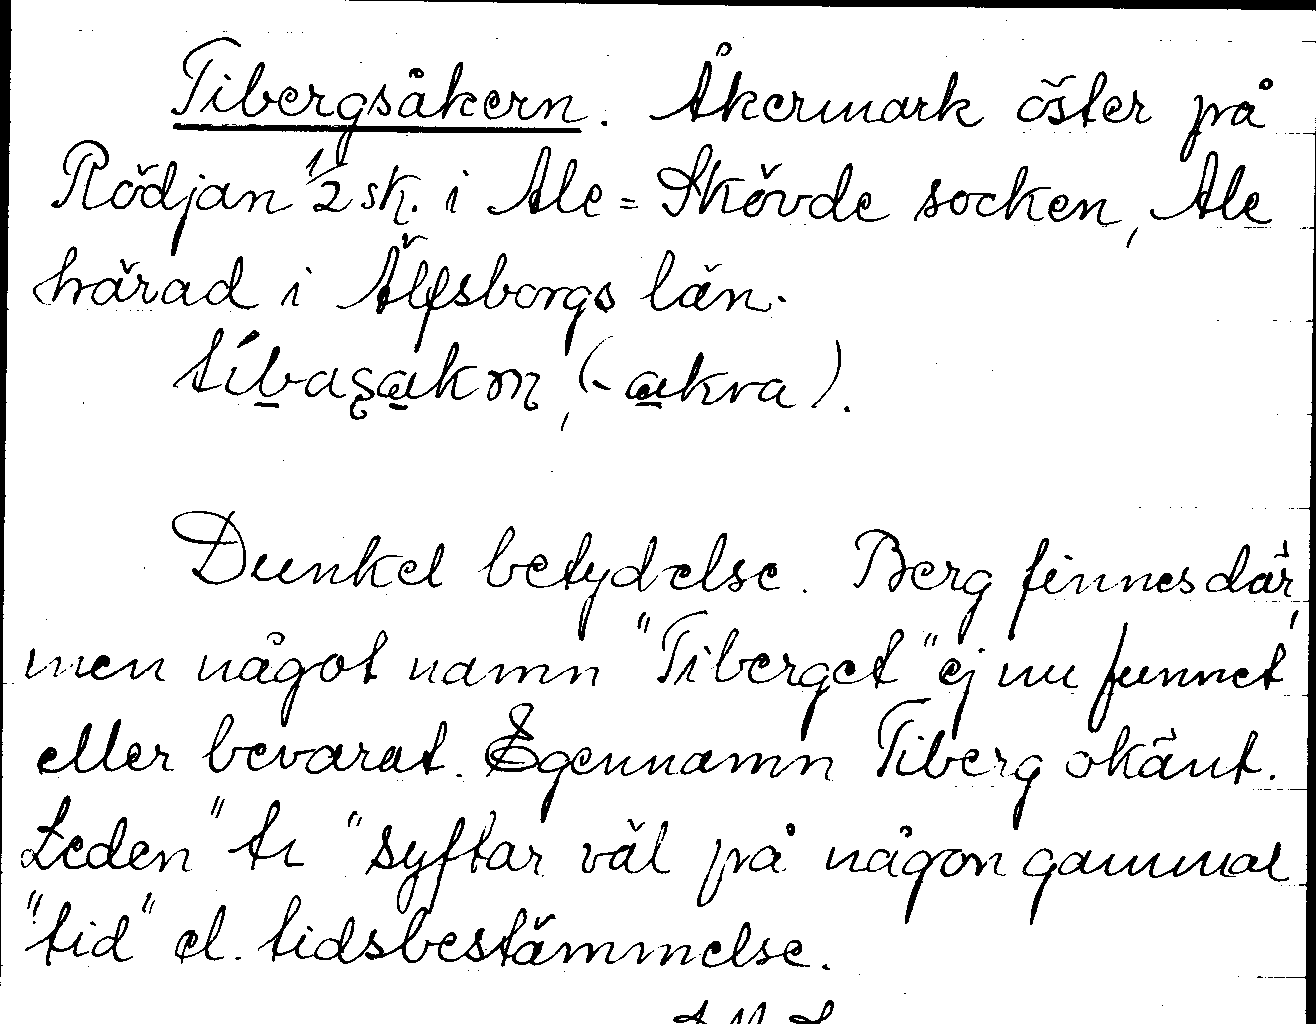 Tibergsåkern. Åkermark öster på
Rödjan 1/2 sk. i Ale=Skövde socken, Ale
härad i Älfsborgs län.
tíbasakon, (-akra).
Dunkel betydelse. Berg finnes där,
men något namn "Tiberget" ej nu funnet
eller bevarat. Egennamn Tiberg okänt.
Leden "ti" syftar väl på någon gammal
"tid" el. tidsbestämmelse.